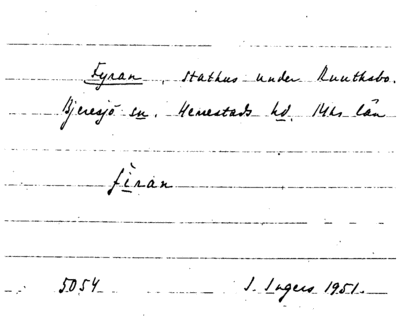 Fyran, stathus under Ruuthsbo.
Bjeresjö sn. Herrestads hd. Mhs län
fìran
5054 I. Ingers 1951.